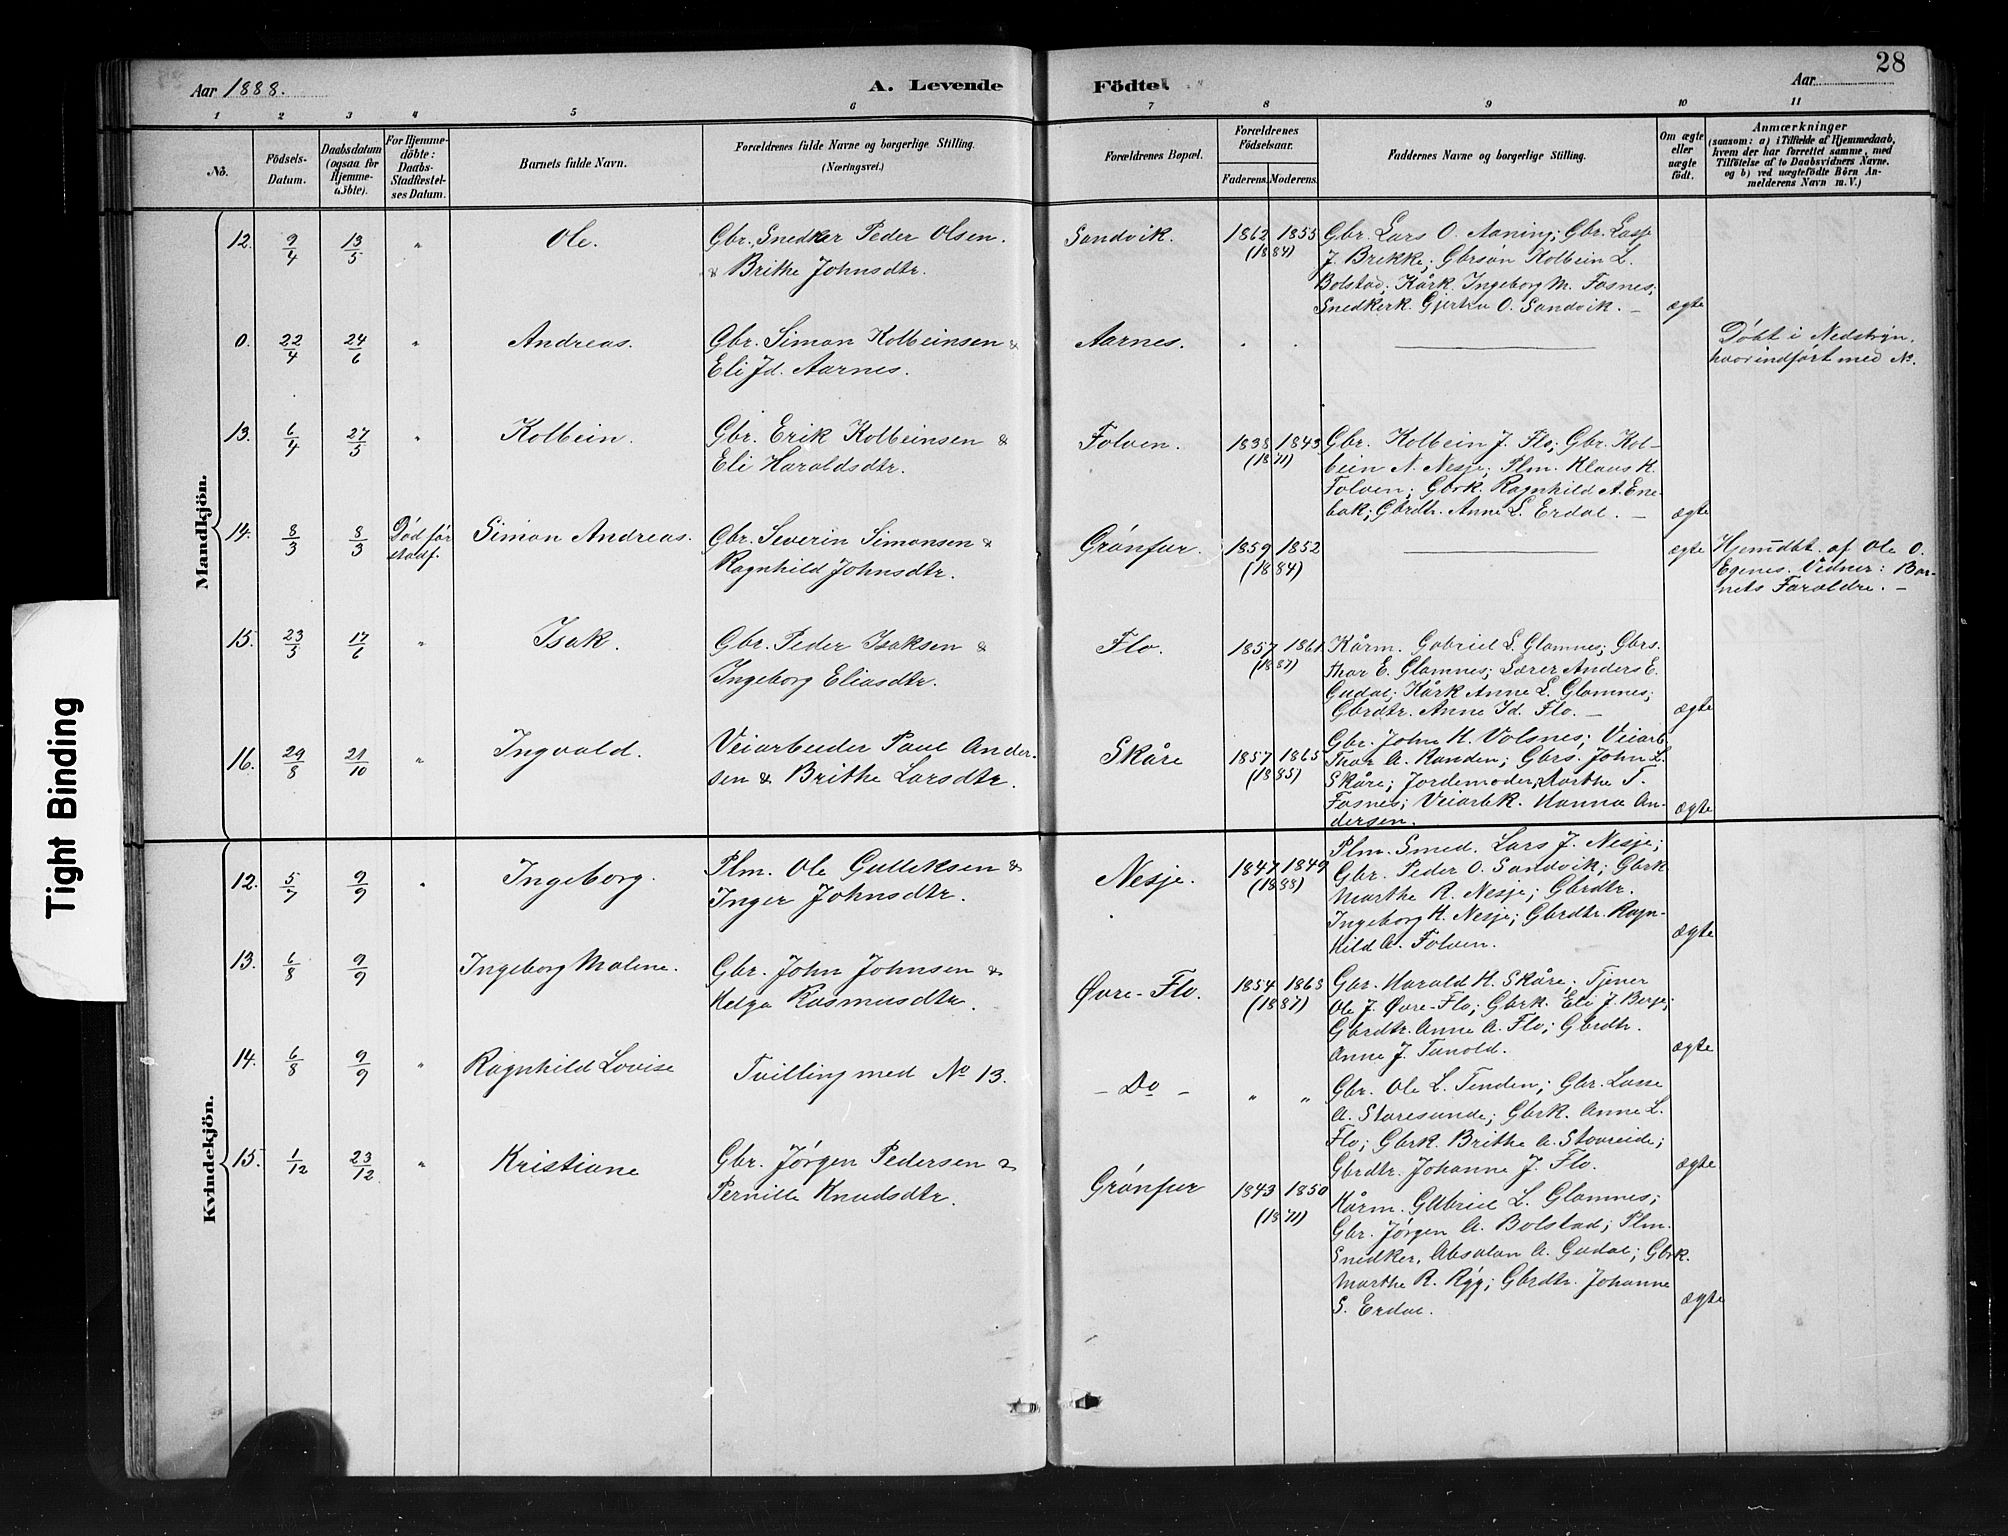 28
Aar 1888. A. Levende Födte. Aar
1 2 3 4 5 6 7 8 9 10 11
No.
Födsels-Datum.
Daabsdatum (ogsaa for Hjemme-döbte).
For Hjemme-döbte: Daabs-Stadfestel-ses Datum.
Barnets fulde Navn.
Forældrenes fulde Navne og borgerlige Stilling. (Næringsvei.)
Forældrenes Bopæl.
Forældrenes Födselsaar.
Faderens. Moderens.
Faddernes Navne og borgerlige Stilling.
Om ægte eller uægte födt.
Anmærkninger
(saasom: a) i Tilfælde af Hjemmedaab,
hvem der har forrettet samme, med
Tilföielse af to Daabsvidners Navne,
og b) ved uægtefödte Börn An-
melderens Navn m. V.)
Mandkjön.
12. 9/4 13/5 " Ole. Gbr. Snedker Peder Olsen. Sandvik. 1862 1855 Gbr. Lars O. Aaning; Gbr. Lasse
& Brithe Johnsdtr. (1884) J. Brekke; Gbrsøn Kolbein L.
Bolstad; Kårk. Ingeborg M. Fosnes;
Snedkerk. Gjertru O. Sandvik. — ægte
0. 22/4 24/6 " Andreas. Gbr. Simon Kolbeinsen & Aarnes. Døbt i Nedstryn.
Eli Jd. Aarnes. hvor indført med No.
13. 6/4 27/5 " Kolbein. Gbr. Erik Kolbeinsen & Folven. 1838 1843 Gbr. Kolbein J. Flo; Gbr. Kol-
Eli Haraldsdtr. (1871) bein N. Nesje; Plm. Klaus K.
Folven; Gbrk. Ragnhild A. Ene-
bak; Gbrdtr. Anne L. Erdal. — ægte
14. 8/3 8/3 Død før stadf. Simon Andreas. Gbr. Severin Simonsen & Grønfur. 1859 1852 ægte Hjemdbt. af Ole O.
Ragnhild Johnsdtr. (1884) Egenes. Vidner: Bar-
nets Forældre. —
15. 23/5 17/6 " Isak. Gbr. Peder Isaksen & Flo. 1857 1861 Kårm. Gabriel L. Glomnes; Gbrs.
Ingeborg Eliasdtr. (1887) Thor E. Glomnes; Lærer Anders E.
Gudal; Kårk Anne L. Glomnes;
Gbrdtr. Anne Id. Flo. — ægte
16. 29/8 21/10 " Ingvald. Veiarbeider Paul Ander- Skåre 1857 1865 Gbr. John H. Volsnes; Veiarb.
sen & Brithe Larsdtr. (1885) Thor A. Randen; Gbrs. John L.
Skåre; Jordemoder Marthe T.
Fosnes; Veiarbk. Hanna An-
dersen. ægte
Kvindekjön.
12. 5/7 9/9 " Ingeborg. Plm. Ole Gulleksen & Nesje. 1847 1849 Plm. Smed. Lars J. Nesje;
Inger Johnsdtr. (1888) Gbr. Peder O. Sandvik; Gbrk
Marthe R. Nesje; Gbrdtr.
Ingeborg H. Nesje; Gbrdtr. Ragn-
hild A. Folven. ægte
13. 6/8 9/9 Ingeborg Malene. Gbr. John Johnsen & Øvre-Flo. 1854 1863 Gbr. Harald H. Skåre; Tjener
Helga Rasmusdtr. (1887) Ole J. Øvre-Flo; Gbrk. Eli J. Berge;
Gbrdtr. Anne A. Flo; Gbrdtr.
Anne J. Tunold. ægte
14. 6/8 9/9 " Ragnhild Lovise Tvilling med No 13. — Do — " " Gbr. Ole L. Tenden; Gbr. Lasse
A. Storesunde; Gbrk. Anne L.
Flo; Gbrk. Brithe A. Stavreide;
Gbrdtr. Johanne J. Flo. ægte
15. 1/12 23/12 " Kristiane Gbr. Jørgen Pedersen & Grønfur 1843 1850 Kårm. Gabriel L. Glomnes;
Pernille Knudsdtr. (1871) Gbr. Jørgen A. Bolstad; Plm.
Snedker, Absalon A. Gudal; Gbrk.
Marthe R. Ryg; Gbrdtr. Johanne
S. Erdal. ægte
Tight Binding